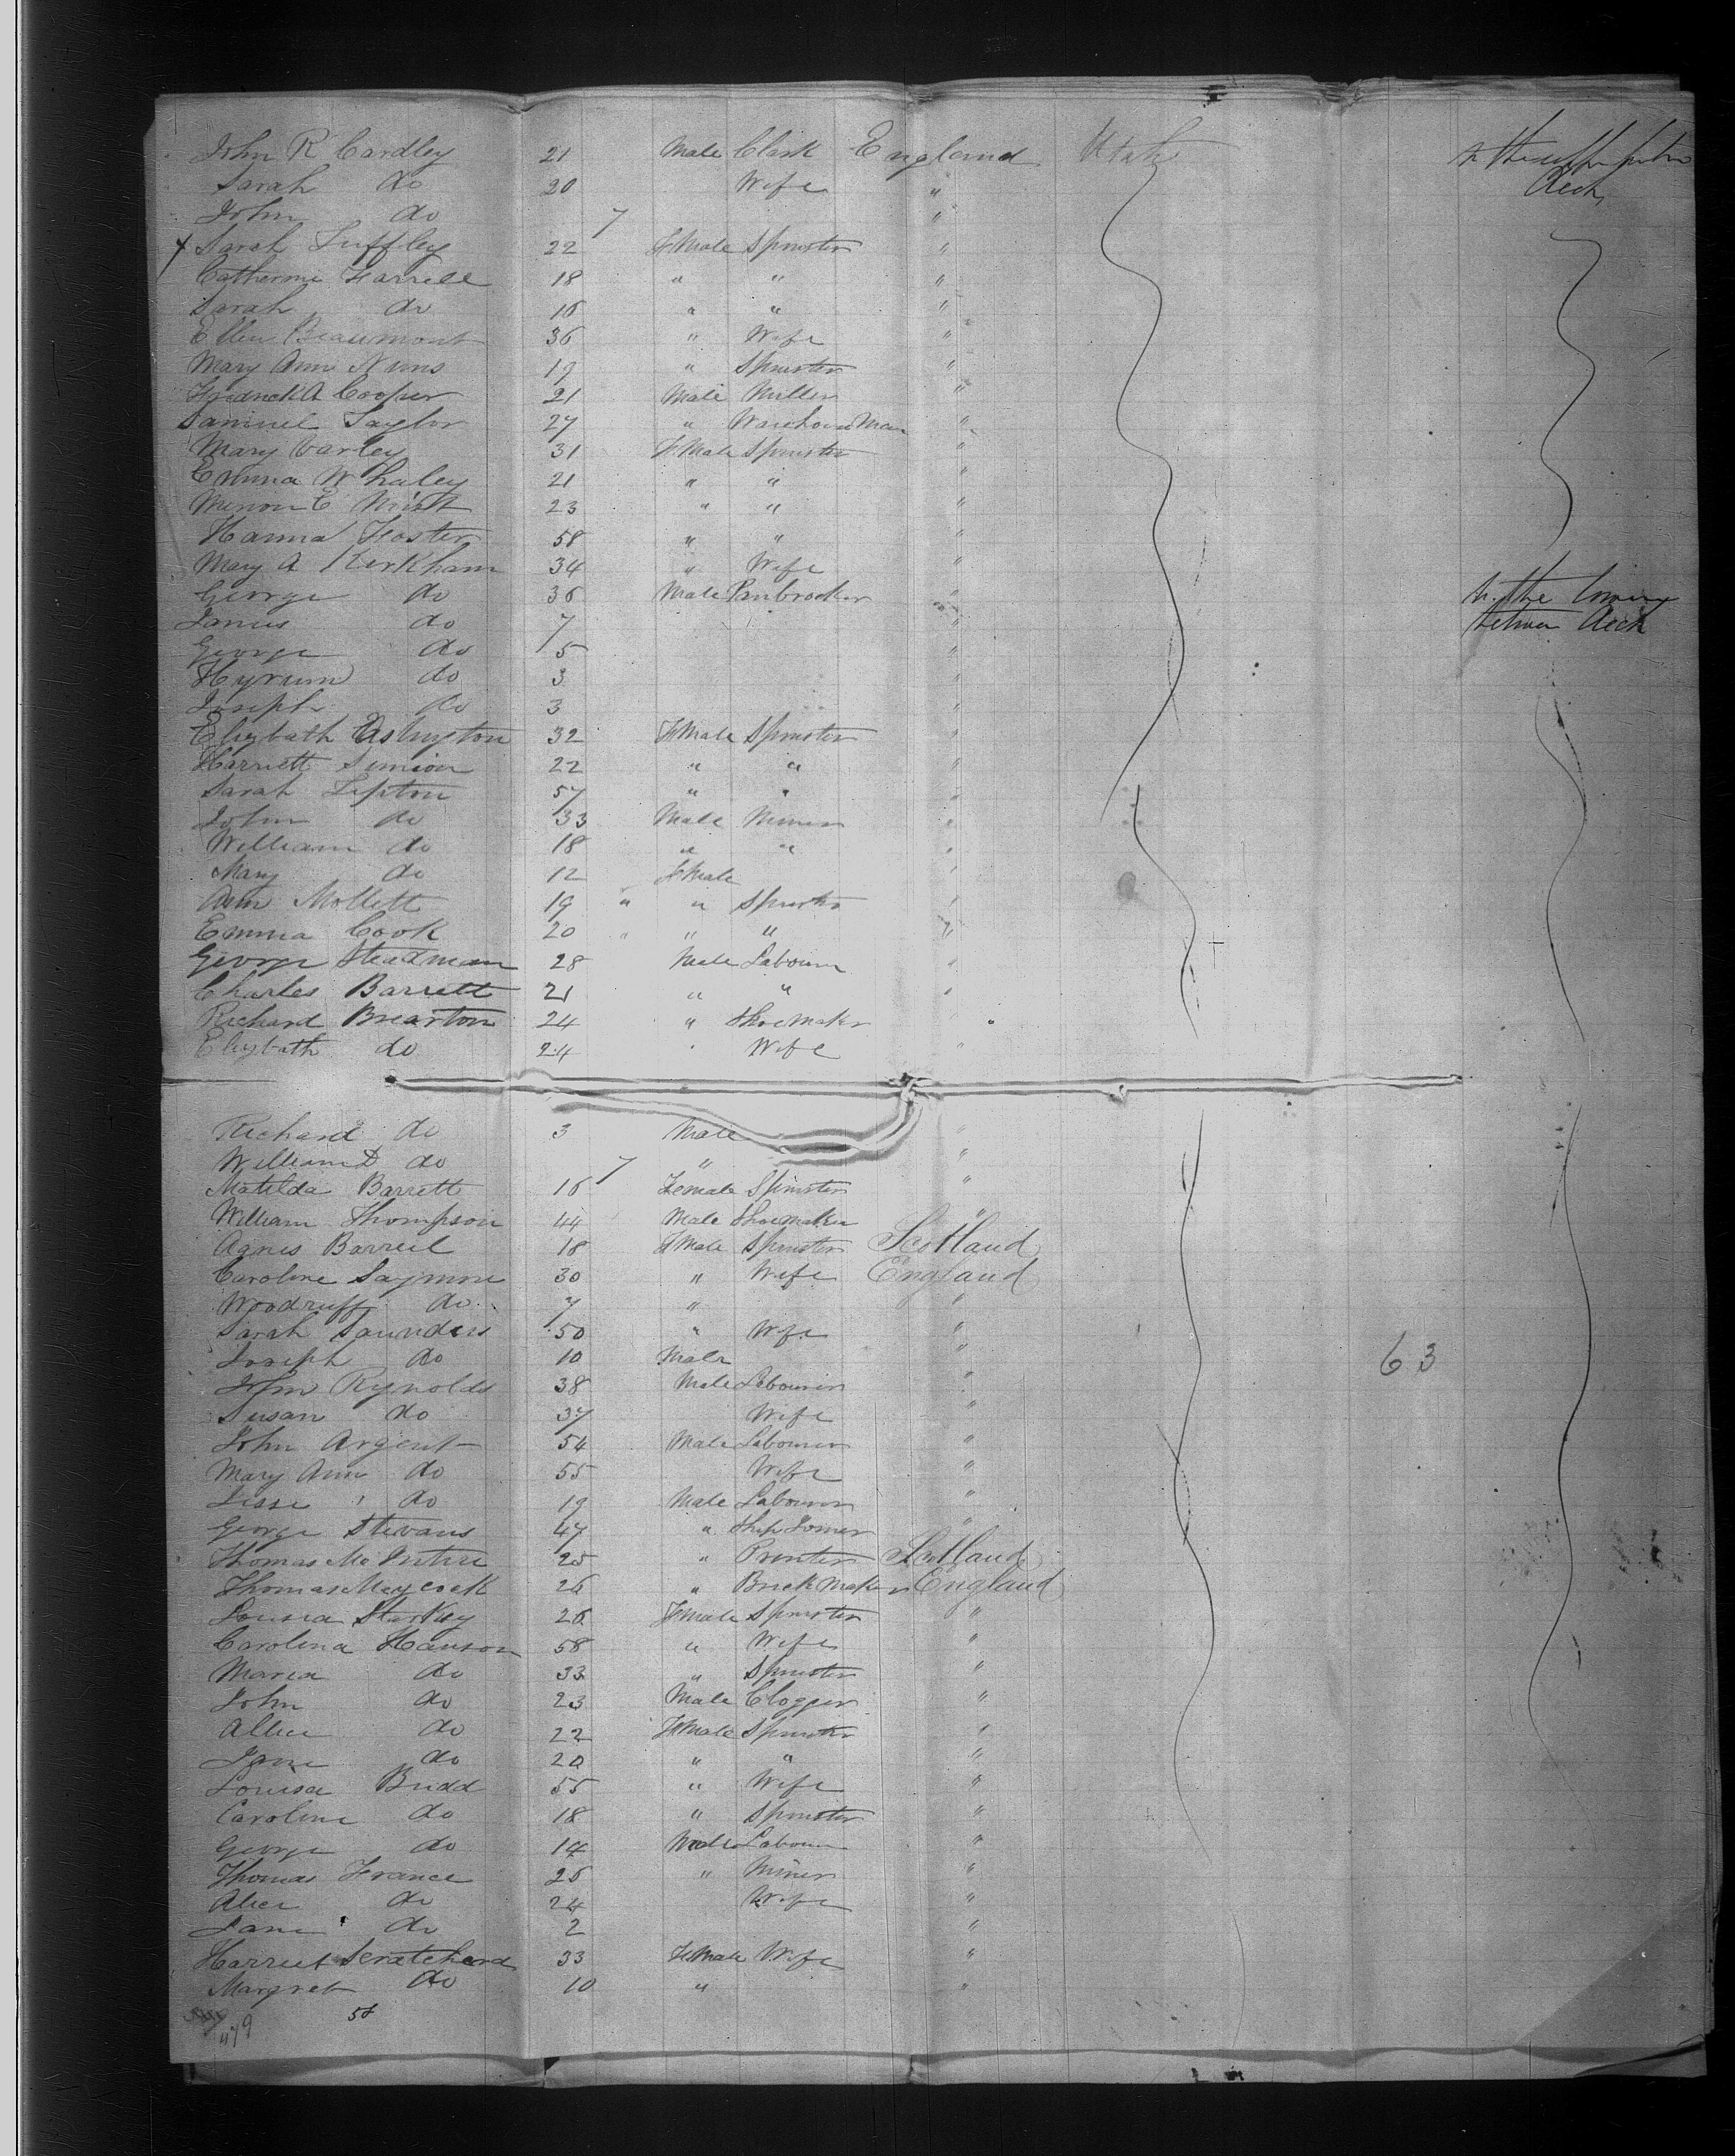 John R Cardley 21 Male Clark England Utah In the upper
Sarah do 20 Wife " Deck
John do 7 "
x Sarah Luffley 22 FMale Spinster "
Catherine Farrell 18 " " "
Sarah do 16 " " "
Ellen Beaumont 36 " Wife "
Mary Ann Nuns 19 " Spinster "
Fredrick A Cooper 21 Male Miller "
Samuel Taylor 27 " Warehouse Man "
Mary Varley 31 FMale Spinster "
Emma Whaley 21 " " "
E 23 " " "
Hanna Foster 58 " " "
Mary A Kirkham 34 " Wife "
George do 36 Male Panbrocker " In the lower
James do 7 " between Deck
George do 5 "
Hyrum do 3 "
Joseph do 3 "
Elizbath Aslington 32 FMale Spinster "
Harriett Simion 22 " " "
Sarah Lepton 57 " " "
John do 33 Male Miner "
William do 18 " " "
Mary do 12 FMale "
Ann Mollett 19 " " Spinster "
Emma Cook 20 " " " "
George Steadman 28 Male Labourer "
Charles Barrett 21 " " "
Richard Brearton 24 " Shoemaker "
Elizbath do 24 " Wife "
Richard do 3 Male "
William D do 7 " "
Matilda Barrett 16 Female Spinster "
William Thompson 44 Male Shoemaker "
Agnes Barreil 18 FMale Spinster Scotland
Caroline Saymore 30 " Wife England
Woodruff do 7 " "
Sarah Saunders 50 " Wife "
Joseph do 10 Male " 63
John Rynolds 38 Male Labourer "
Susan do 37 Wife "
John Argent 54 Male Labourer "
Mary Ann do 55 Wife "
Jesse do 19 Male Labourer "
George Stevans 47 " Ship Joiner "
Thomas Mc Intire 25 " Printer Scotland
Thomas Maycock 26 " Brick Maker England
Lousia Starkey 26 FMale Spinster "
Carolina Hanson 58 " Wife "
Maria do 33 " Spinster "
John do 23 Male Clogger "
Allice do 22 FMale Spinster "
Jane do 20 " " "
Louisa Budd 55 " Wife "
Caroline do 18 " Spinster "
George do 14 Male Labourer "
Thomas France 26 " Miner "
Alice do 24 Wife "
Jane do 2 "
Harriet Scratcherd 33 FeMale Wife "
Margret do 10 " "
479